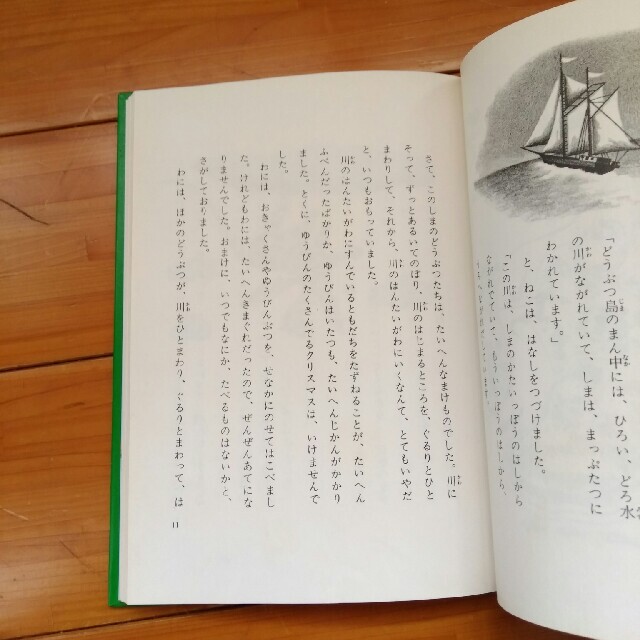 「どうぶつ島のまん中には、ひろい、どろ水
の川がながれていて、しまは、まっぷたつに
わかれています。」
と、ねこは、はなしをつづけました。
「この川は、しまのかたいっぽうのはしから
ながれでていて、もういっぽうのはしから、
さて、このしまのどうぶつたちは、たいへんなまけものでした。川に
そって、ずっとあるいてのぼり、川のはじまるところを、ぐるりとひと
まわりして、それから、川のはんたいがわにいくなんて、とてもいやだ
と、いつもおもっていました。
川のはんたいがわにすんでいるともだちをたずねることが、たいへん
ふべんだったばかりか、ゆうびんはいたつも、たいへんじかんがかかり
ました。とくに、ゆうびんのたくさんでるクリスマスは、いけませんで
した。
わには、おきゃくさんやゆうびんぶつを、せなかにのせてはこべまし
た。けれどもわには、たいへんきまぐれだったので、ぜんぜんあてにな
りませんでした。おまけに、いつでもなにか、たべるものはないかと、
さがしておりました。
わには、ほかのどうぶつが、川をひとまわり、ぐるりとまわって、は
11